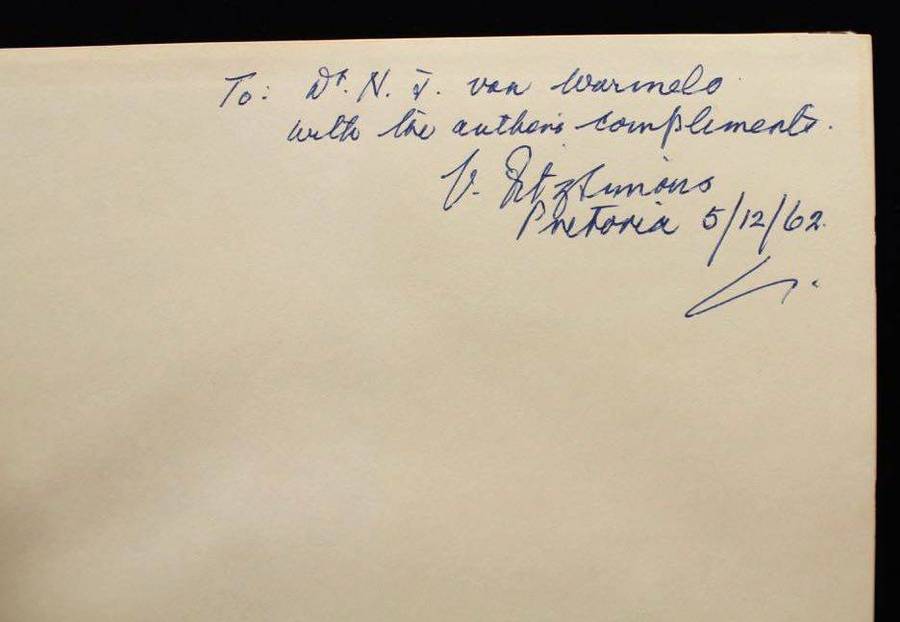 To: Dr. N. J. van Warmelo
with the author's compliments.
V. FitzSimons
Pretoria 5/12/62.